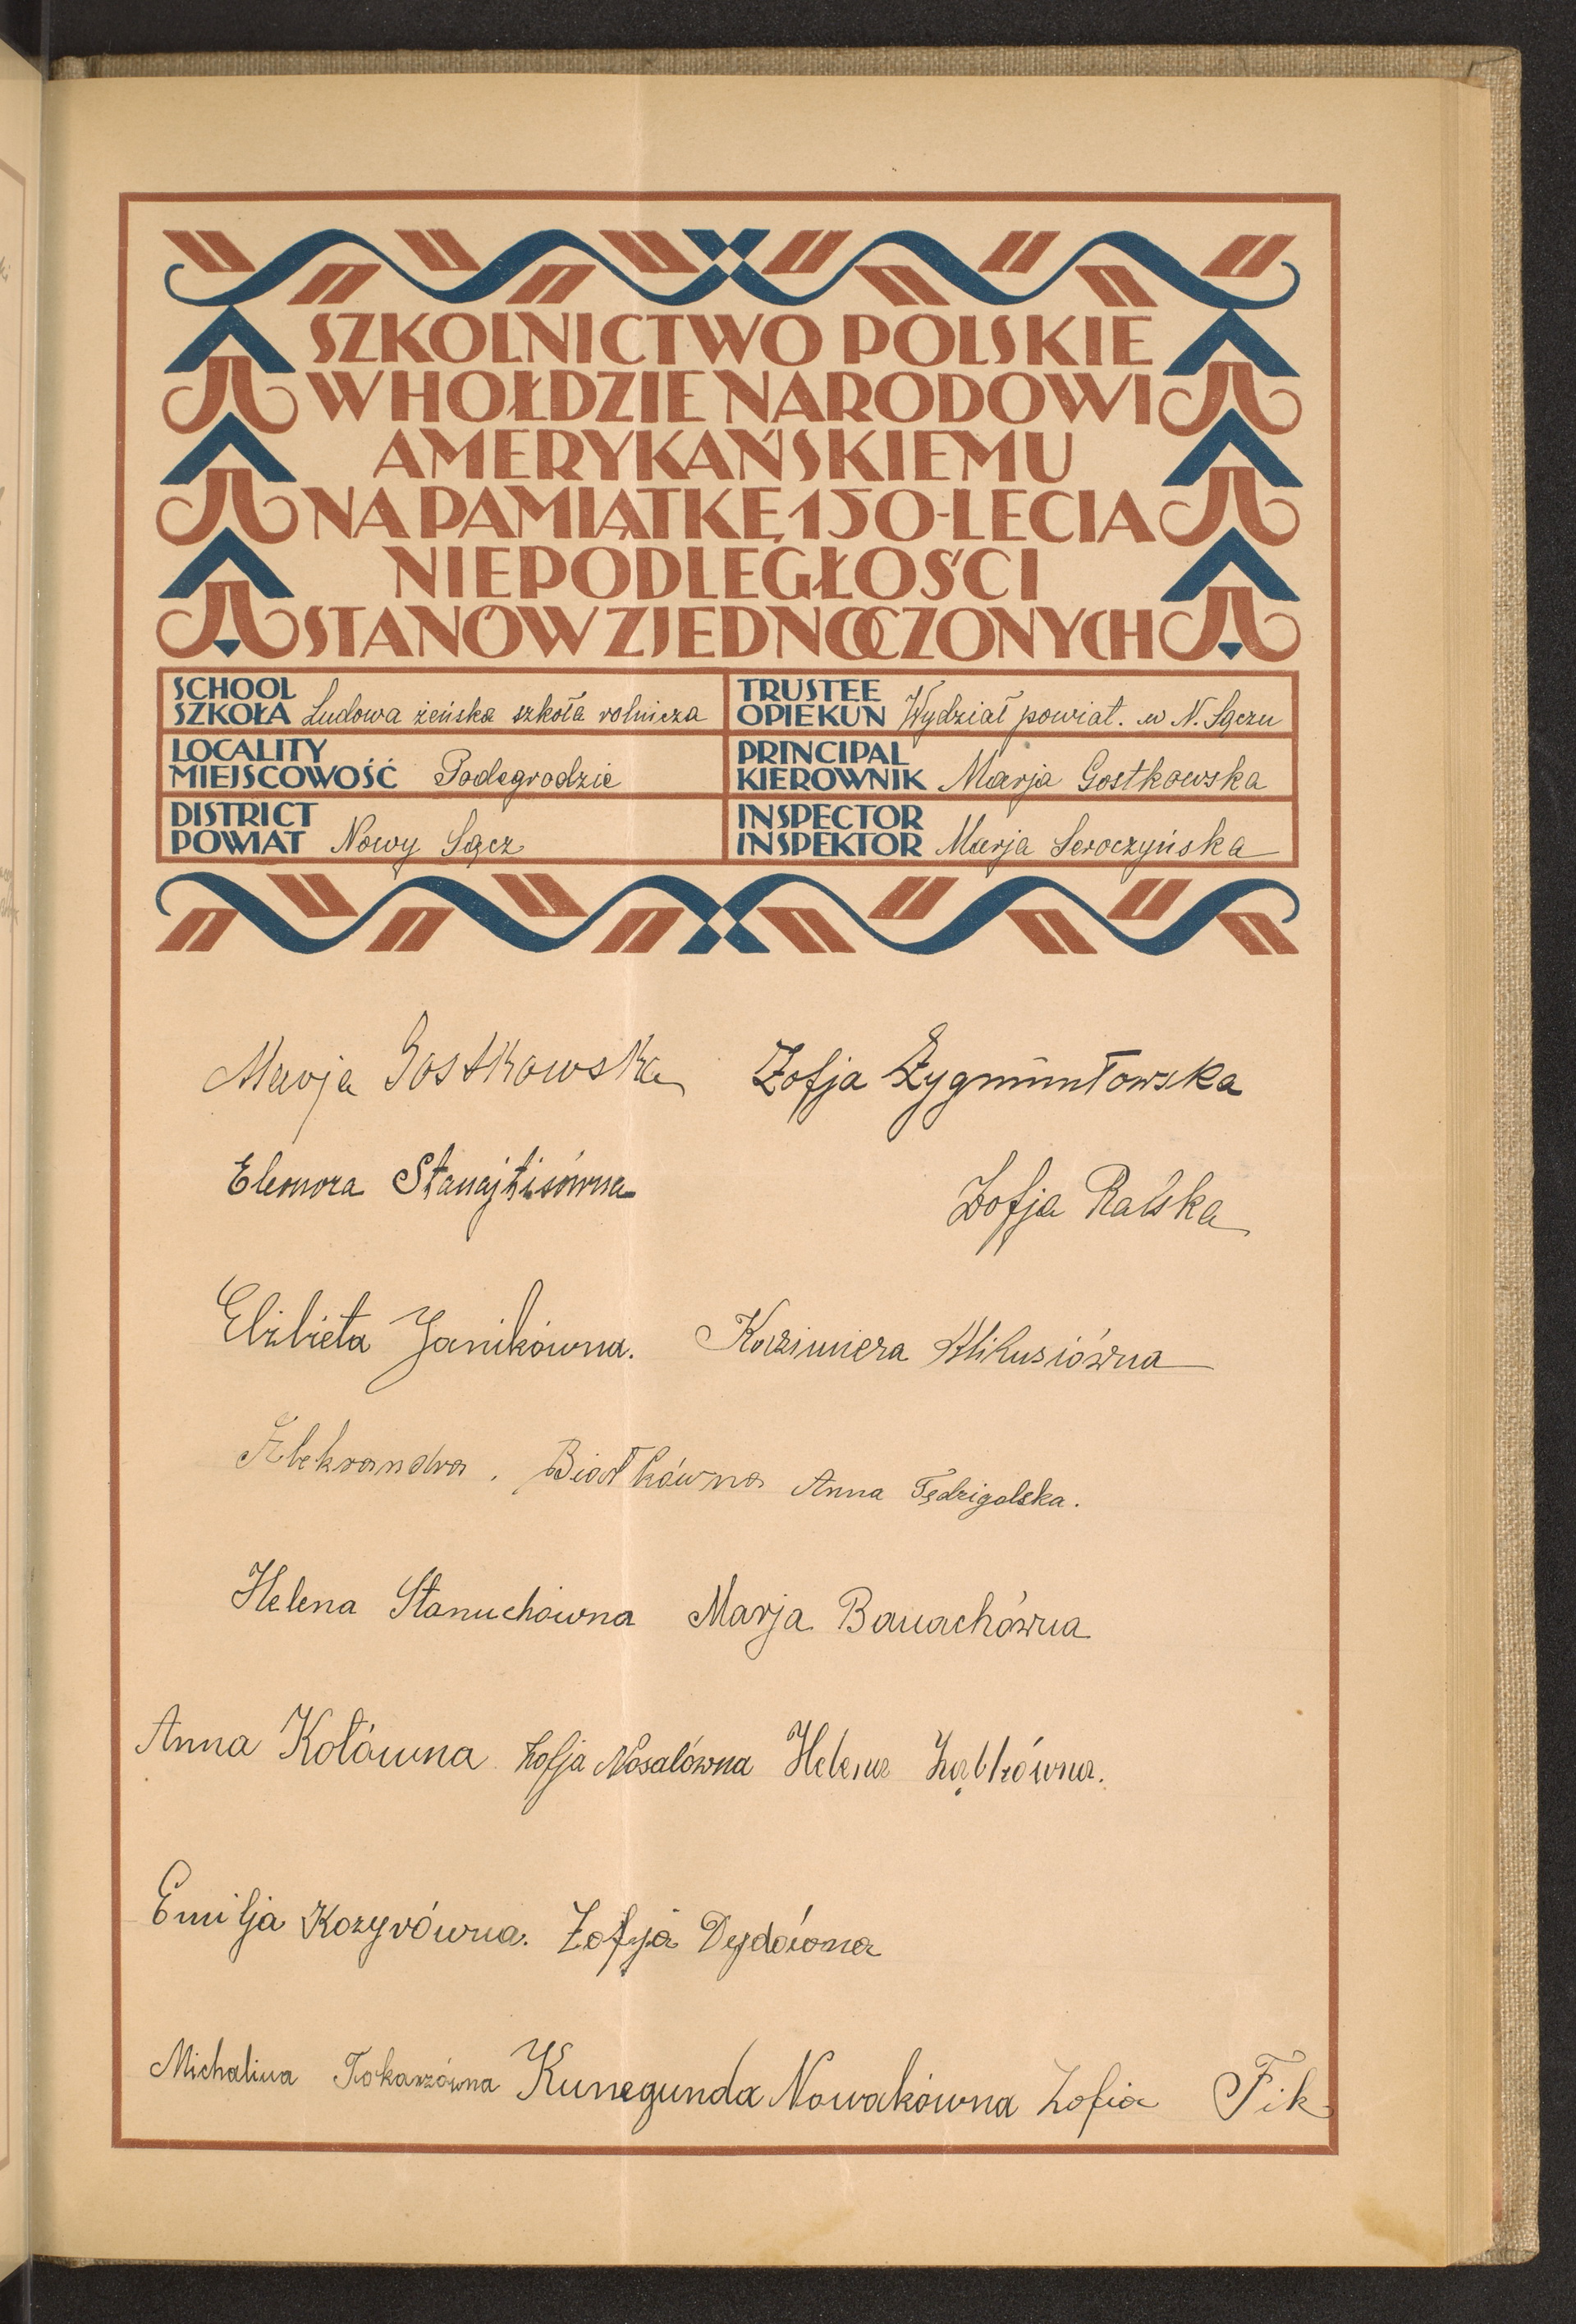 SZKOLNICTWO POLSKIE
W HOŁDZIE NARODOWI
AMERYKAŃSKIEMU
NA PAMIĄTKĘ 150-LECIA
NIEPODLEGŁOŚCI
STANÓW ZJEDNOCZONYCH
SCHOOL
SZKOŁA Ludowa żeńska szkoła rolnicza
TRUSTEE
OPIEKUN Wydział powiat. w N. Sączu
LOCALITY
MIEJSCOWOŚĆ Podegrodzie
PRINCIPAL
KIEROWNIK Marja Gostkowska
DISTRICT
POWIAT Nowy Sącz
INSPECTOR
INSPEKTOR Marja Seroczyńska
Marja Gostkowska Zofja Zygmuntowska
Eleonora Stanajtisówna Zofja Ralska
Elżbieta Janikówna. Kazimiera Mikusiówna
Aleksandra. Białkówna Anna Tędzigolska.
Helena Stanuchówna Marja Banachówna
Anna Kołówna Zofja Nosalówna Helena Ząbkówna.
Emilja Kozyrówna. Zofja Dydówna
Michalina Tokarzówna Kunegunda Nowakówna Zofia Fik